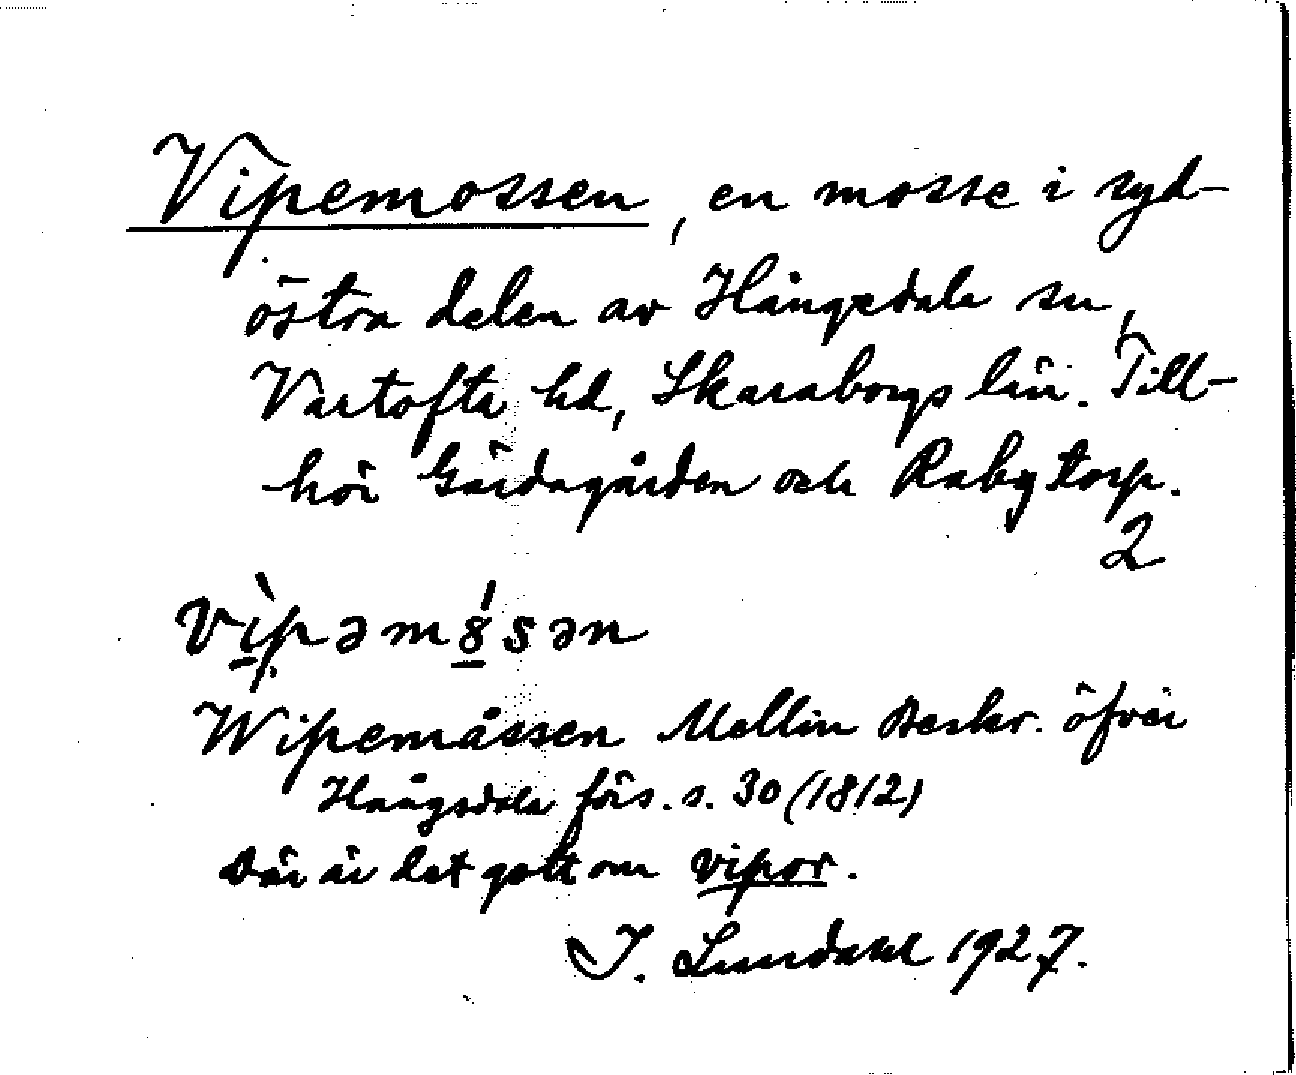 Vipemossen, en mosse i syd-
östra delen av Hångsdala sn,
Vartofta hd, Skaraborgs län. Till-
hör Gärdagården och Rabytorp.
2
vìpəmósən
Wipemåssen Mellin Beskr. öfver
Hångsdala förs. s. 30 (1812)
Där är det gott om vipor.
I. Lundahl 1927.